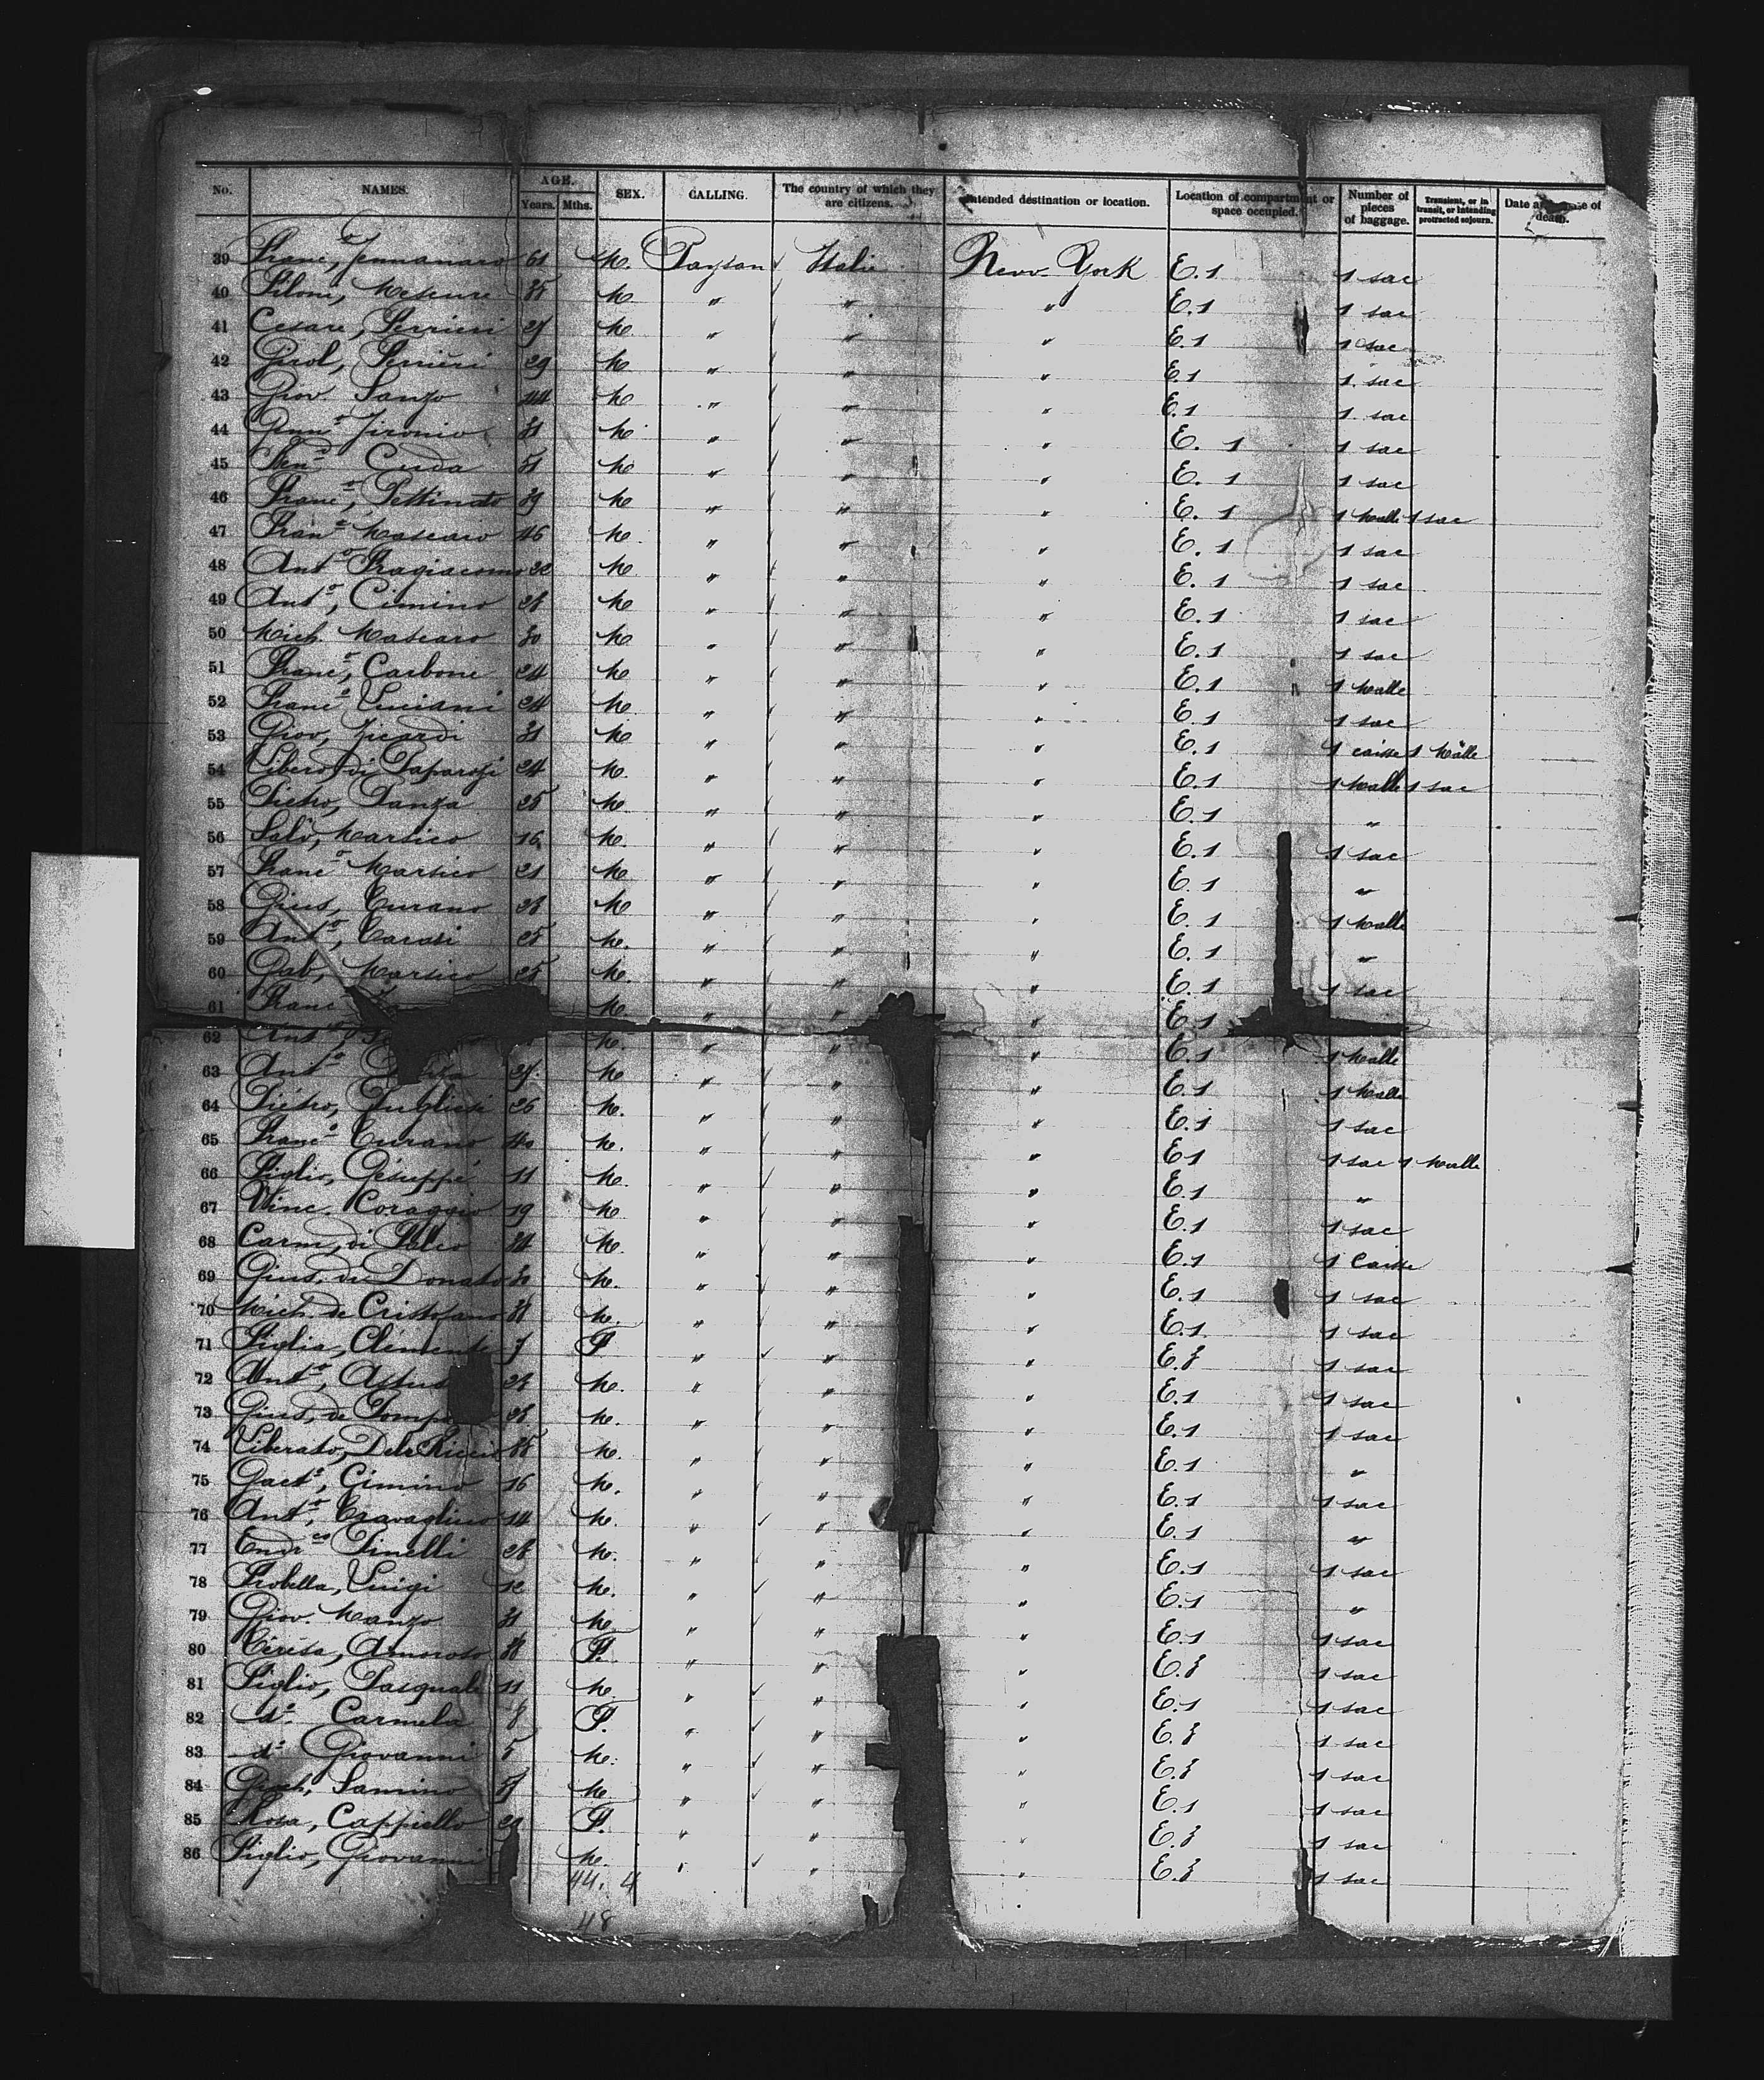 No. NAMES. AGE. Years. Mths. SEX. CALLING. The country of which they are citizens. Intended destination or location. Location of compartment or space occupied. Number of pieces of baggage. Transient, or in transit, or intending protracted sojourn. Date and cause of death.
39 Franc.o, Jennanaro 61 M. Paysan Italie New York E.1 1 sac
40 Filom, 35 M " " " E.1 1 sac
41 Cesare, Perrieri 27 M " " " E.1 1 sac
42 Perrieri 29 M " " " E.1 1 sac
43 Giov. Sanzo 44 M " " " E.1 1 sac
44 Genn.o Jironio 31 M " " " E. 1 1 sac
45 Cuda 51 M " " " E. 1 1 sac
46 Franc.o, Pettinato 39 M " " " E. 1 1 malle 1 sac
47 Fran.o Mascaro 46 M " " " E. 1 1 sac
48 Ant.o Fragiacomo 32 M " " " E. 1 1 sac
49 Ant.o, Cimino 28 M " " " E.1 1 sac
50 Mich. Mascaro 30 M " " " E.1 1 sac
51 Franc.o, Carbone 24 M " " " E.1 1 malle
52 Franc.o Luciani 24 M " " " E.1 1 sac
53 Giov, Zicardi 31 M " " " E.1 1 caisse 1 malle
54 Libero, di 24 M. " " " E.1 1 malle 1 sac
55 Pietro, Panza 25 M. " " " E.1 "
56 Salv, Marsico 16 M. " " " E.1 1 sac
57 Franc.o Marsico 21 M " " " E.1 "
58 Gius, Curano 28 M " " " E. 1 1 malle
59 Ant.o, Carasi 25 M. " " " E. 1 "
60 Gab, Marsico 25 M. " " " E. 1 1 sac
61 Franc M. " " " E.1
62 Ant.o M. " " " E.1 1 malle
63 Ant.o 27. M " " " E.1 1 malle
64 Pietro, Pugliesi 26 M. " " " E.1 1 sac
65 Franc.o Curano, 40 M. " " " E1 1 sac 1 malle
66 Figlio, Gesuppe 11 M. " " " E.1 "
67 Vinc. Coraggio 19 M " " " E.1 1 sac
68 Carm, di 34 M. " " " E.1 1 Caisse
69 Gius, di Donato 30 M. " " " E.1 1 sac
70 Mich. de Cristofano 31 M. " " " E.1 1 sac
71 Figlia, Clemente 7 F. " " " E.3 1 sac
72 Ant.o, 28 M. " " " E.1 1 sac
73 Gius, de Pomp 28 M. " " " E.1 1 sac
74 Liberato, Del Riccio 35 M. " " " E.1 "
75 Gaet.o, Cimino 16 M. " " " E.1 1 sac
76 Ant.o, Cravaglino 14 M. " " " E.1 "
77 Pinelli 28 M. " " " E.1 1 sac
78 Probilla, Luigi 12 M. " " " E.1 "
79 Giov. Manzo 31 M " " " E.1 1 sac
80 Ceresa, Amoroso 38 F. " " " E.3 1 sac
81 Figlio, Pasquale 11 M " " " E.1 1 sac
82 d.o Carmela 8 F. " " " E.3 1 sac
83 d.o Giovanni 5 M. " " " E.3 1 sac
84 Samino 51 M " " " E.1 1 sac
85 Rosa, Cappiello 29 F. " " " E.3 1 sac
86 Figlio, Giovanni M. " " " E.3 1 sac
44. 4
48